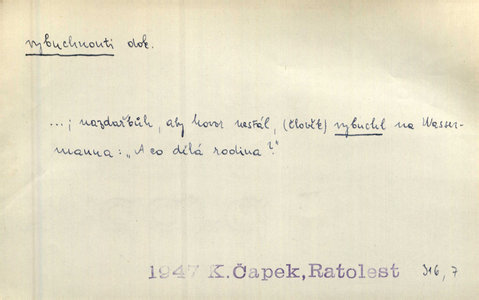 vybuchnouti dok.
...; nazdařbůh, aby hovor nestál, (člověk) vybuchl na Wasser-
manna: „A co dělá rodina?"
1947 K.Čapek, Ratolest 316, 7